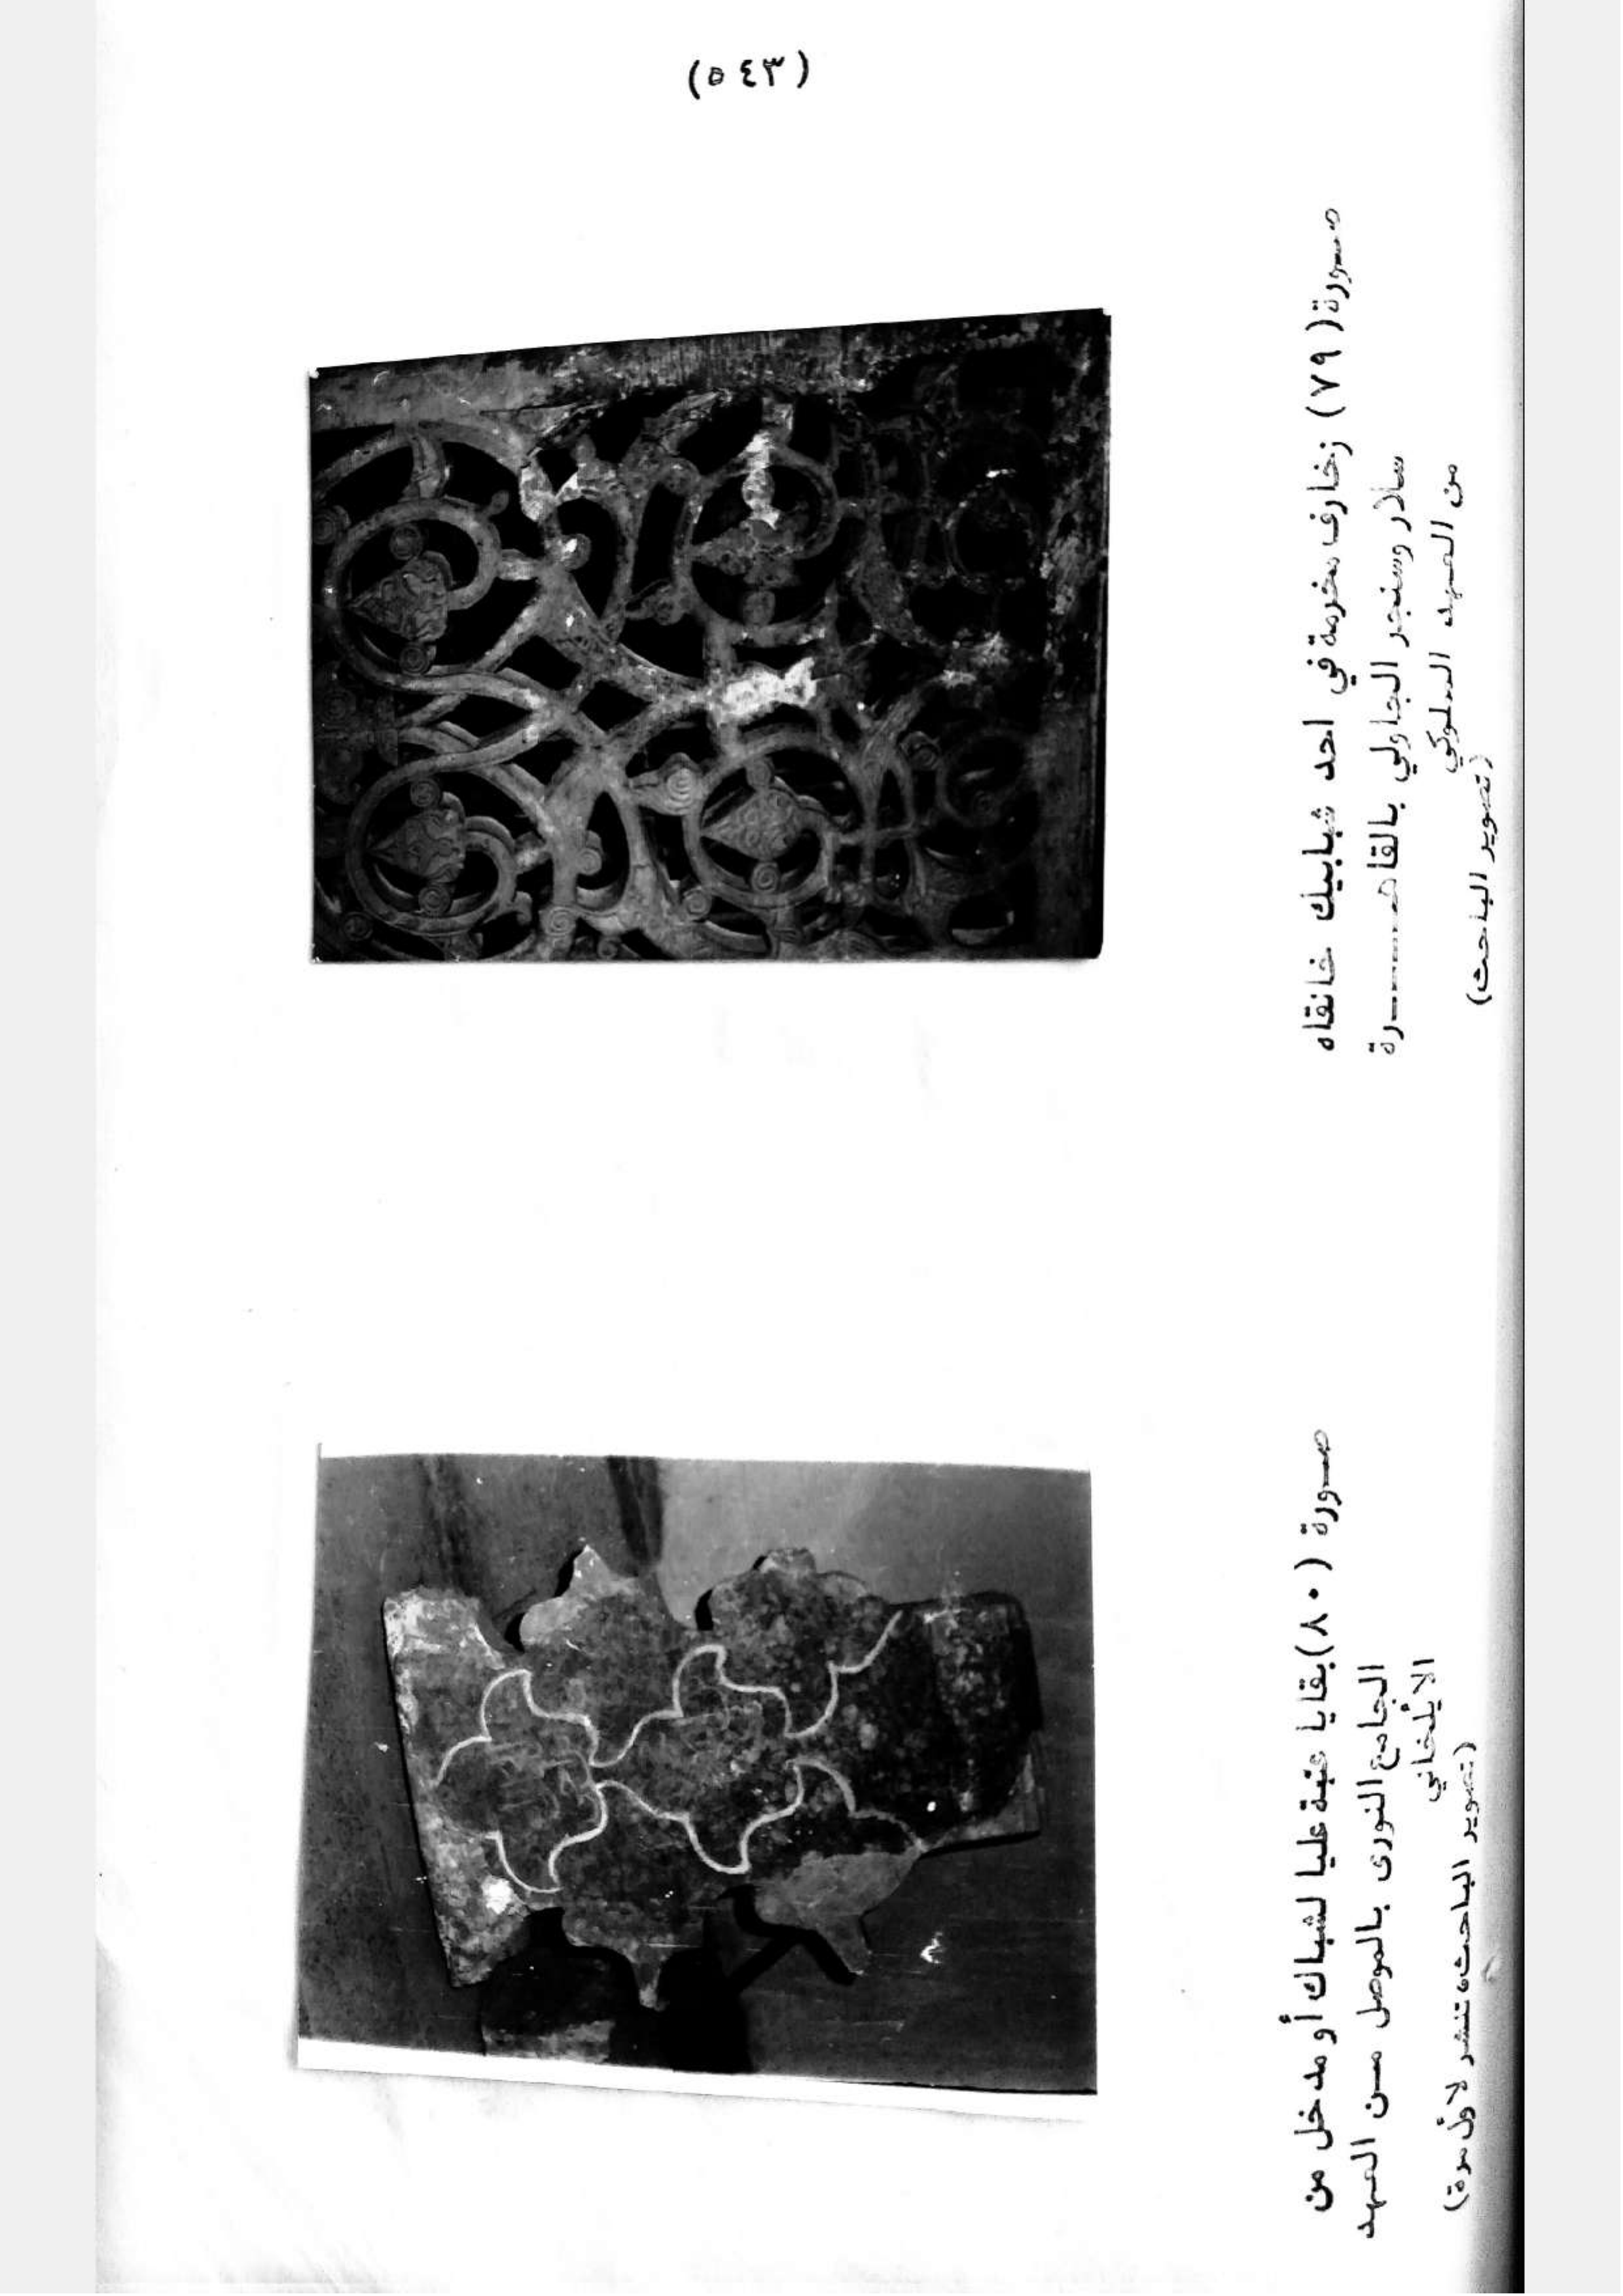 (٥٤٣)
صورة (٧٩) زخارف مخرمة في احد شبابيك خانقاه
سلار وسنجر الجاولي بالقاهـــــرة
من العهد المملوكي
(تصوير الباحث)
صورة (٨٠) بقايا عتبة عليا لشباك أو مدخل من
الجامع النورى بالموصل من العهد
الايلخاني
(تصوير الباحث، تنشر لأول مرة)